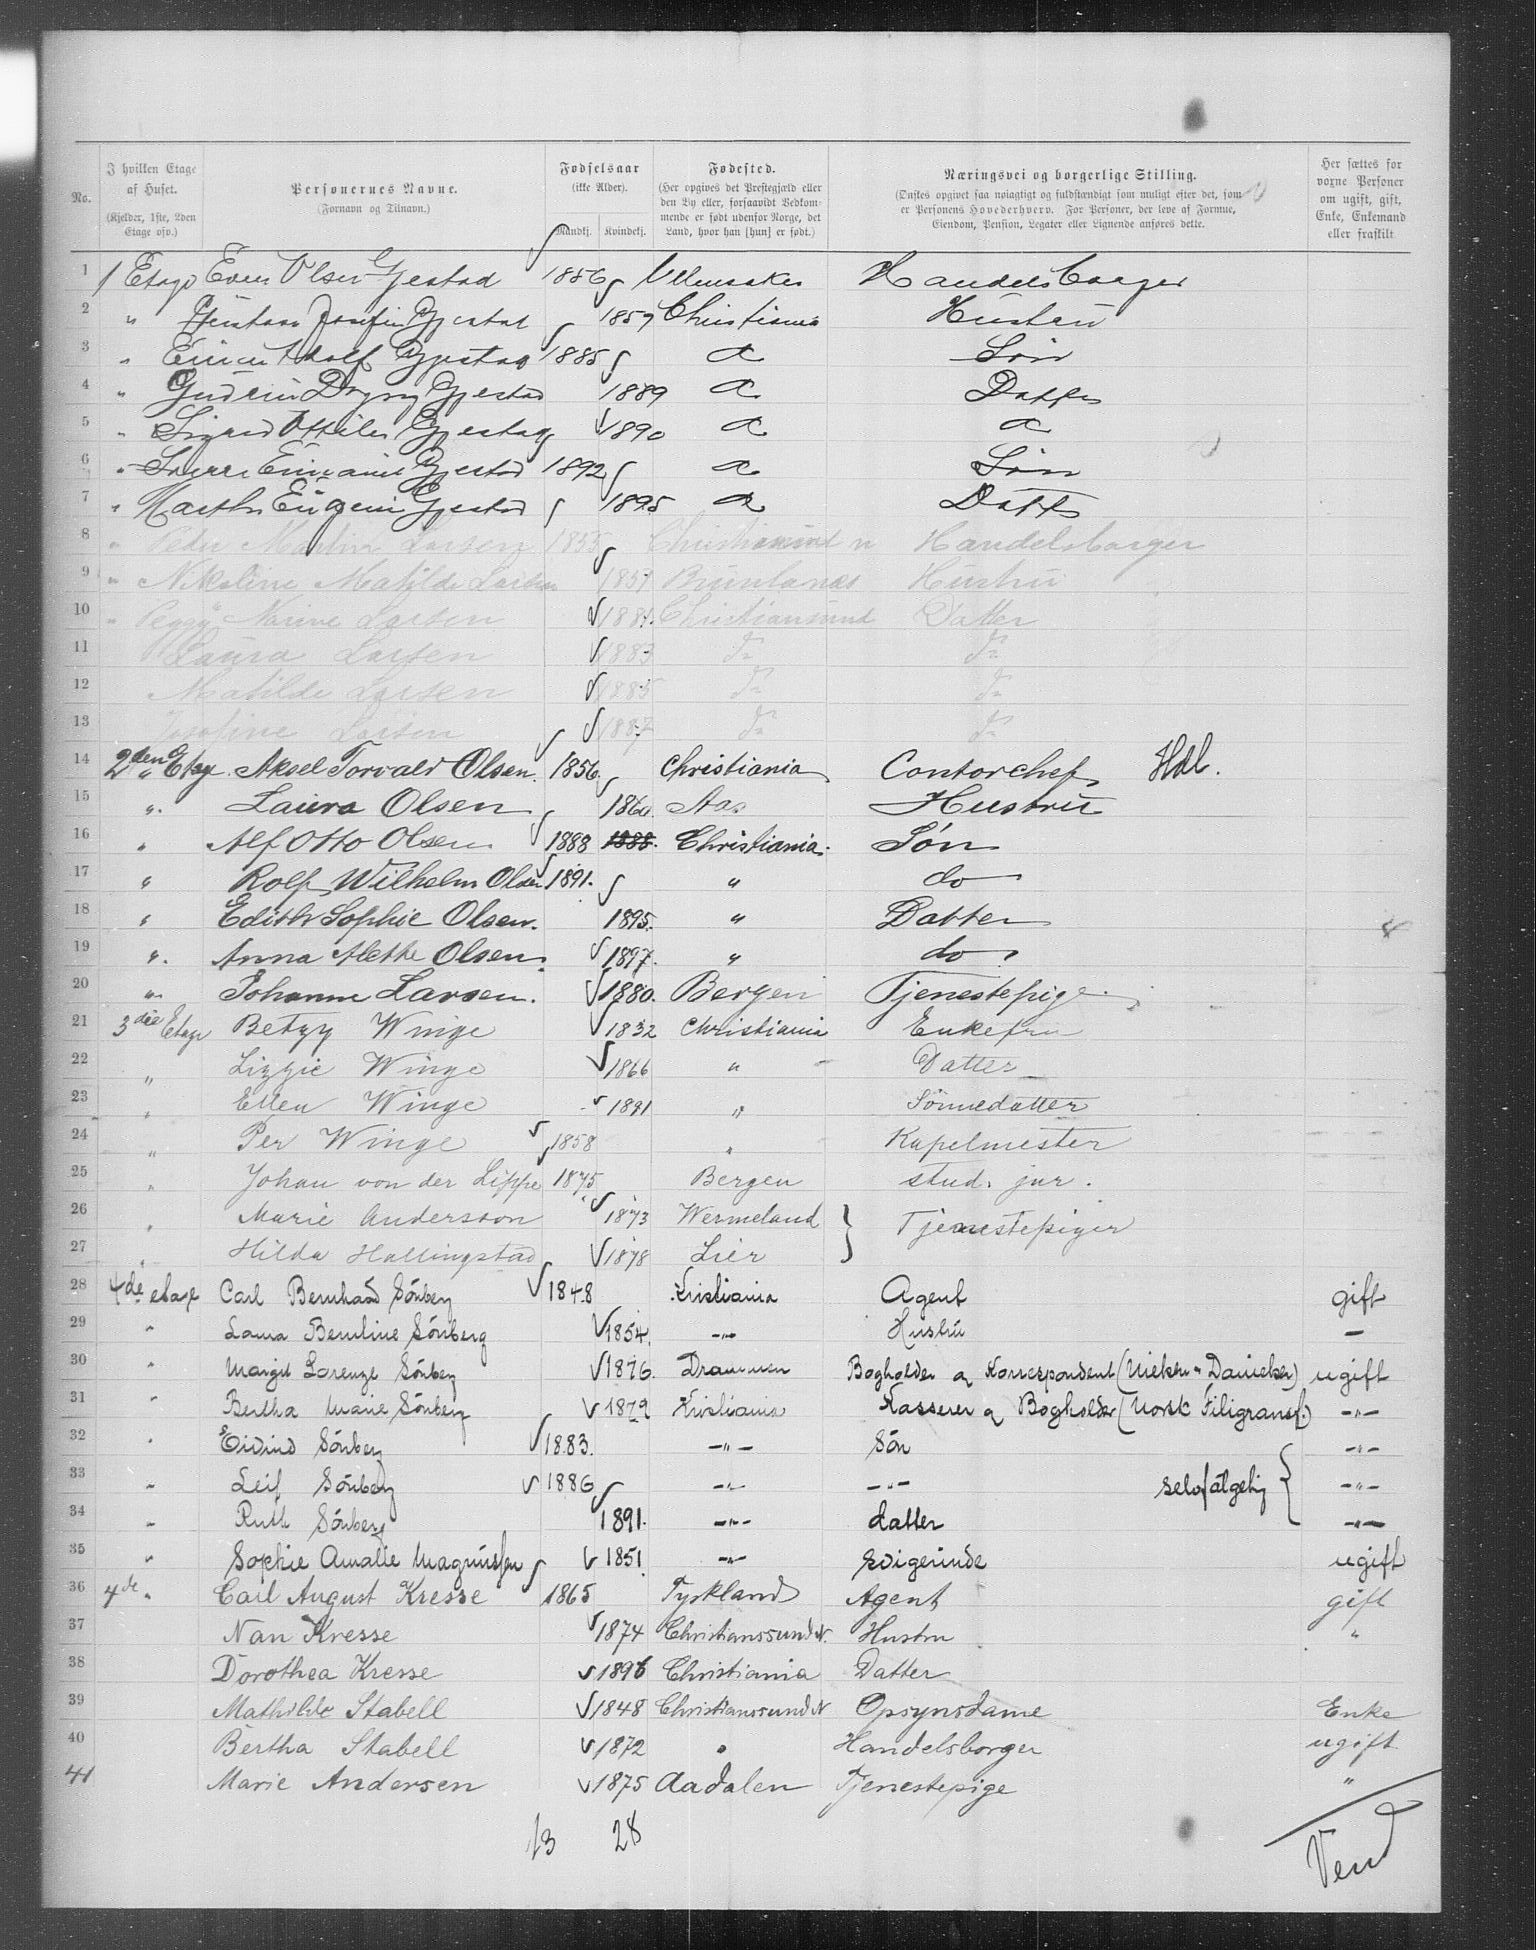 No.
I hvilken Etage af Huset. (Kjelder, 1ste, 2den Etage osv.)
Personernes Navne. (Fornavn og Tilnavn.)
Fødselsaar (ikke Alder). Mandkj. Kvindekj.
Fødested. (Her opgives det Prestegjæld eller den By eller, forsaavidt Vedkommende er født udenfor Norge, det Land, hvor han [hun] er født.)
Næringsvei og borgerlige Stilling. (Ønskes opgivet saa nøiagtigt og fuldstændigt som muligt efter det, som er Personens Hovederhverv. For Personer, der leve af Formue, Eiendom, Pension, Legater eller Lignende anføres dette.
Her sættes for voxne Personer om ugift, gift, Enke, Enkemand eller fraskilt
1 1 Etage Even Olsen Gjestad 1856 Ullensaker Handelsborger
2 " Josefin Gjestad 1857 Christiania Hustru
3 " Adolf Gjestad 1885 Søn
4 " Gudrun Dagny Gjestad 1889 Datter
5 " Sigrid Ottilie Gjestad 1890
6 " Gjestad 1892 Søn
7 " Marth Eugeni Gjestad 1895 Datt
8 " Peder Martin Larsen 1855 Christiansund n Handelsborger
9 " Nikoline Matilde Larsen 1857 Brunlanes Hustru
10 " Peggy Narine Larsen 1881. Christiansund Datter
11 Laura Larsen 1883 do do
12 Matilde Larsen 1885 do do
13 Josefine Larsen 1887 do do
14 2den Etag. Aksel Torvald Olsen. 1856. Christiania Contorchef Hdl.
15 ". Laura Olsen 1860. Aas Hustru
16 " Alf Otto Olsen 1888 1888. Christiania. Søn
17 " Rolf Wilhelm Olsen 1891. " do
18 " Edith Sophie Olsen. 1895. " Datter
19 ". Anna Alethe Olsen. 1897. " do
20 ". Johanne Larsen. 1880. Bergen Tjenestepige.
21 3die Etage Betzy Winge 1832 Christiania Enkefru
22 " Lizzie Winge 1866 " Datter
23 " Ellen Winge 1891 " Sønnedatter
24 " Per Winge 1858 " Kapelmester
25 " Johan von der Lippe 1875 Bergen stud. jur.
26 " Marie Andersson 1873 Wermeland } Tjenestepiger
27 " Hilda Hallingstad 1878 Lier
28 4de etage Carl Bernhard Sönberg 1848 Kristiania Agent gift
29 " Laura Bernline Sönberg 1854. -"- Hustru -
30 " Margit Lorenze Sönberg 1876. Drammen Bogholder og Korrespondent ugift
31 " Bertha Marie Sönberg 1879 Kristiania Kasserer og Bogholder (Norsk Filigransf.) -"-
32 " Eivind Sönberg 1883. -"- Sön -"-
33 " Leif Sönberg 1886 -"- -"- selvfølgelig { -"-
34 " Ruth Sönberg 1891. -"- datter -"-
35 " Sophie Amalie Magnussen 1851. -"- ugift
36 4de " Carl August Kresse 1865 Tyskland Agent gift
37 Nan Kresse 1874 Christianssund N. Hustru "
38 Dorothea Kresse 1896 Christiania Datter
39 Mathilde Stabell 1848 Christianssund N Opsynsdame Enke
40 Bertha Stabell 1872 " Handelsborger ugift
41 Marie Andersen 1875 Aadalen Tjenestepige "
13 28
Vend